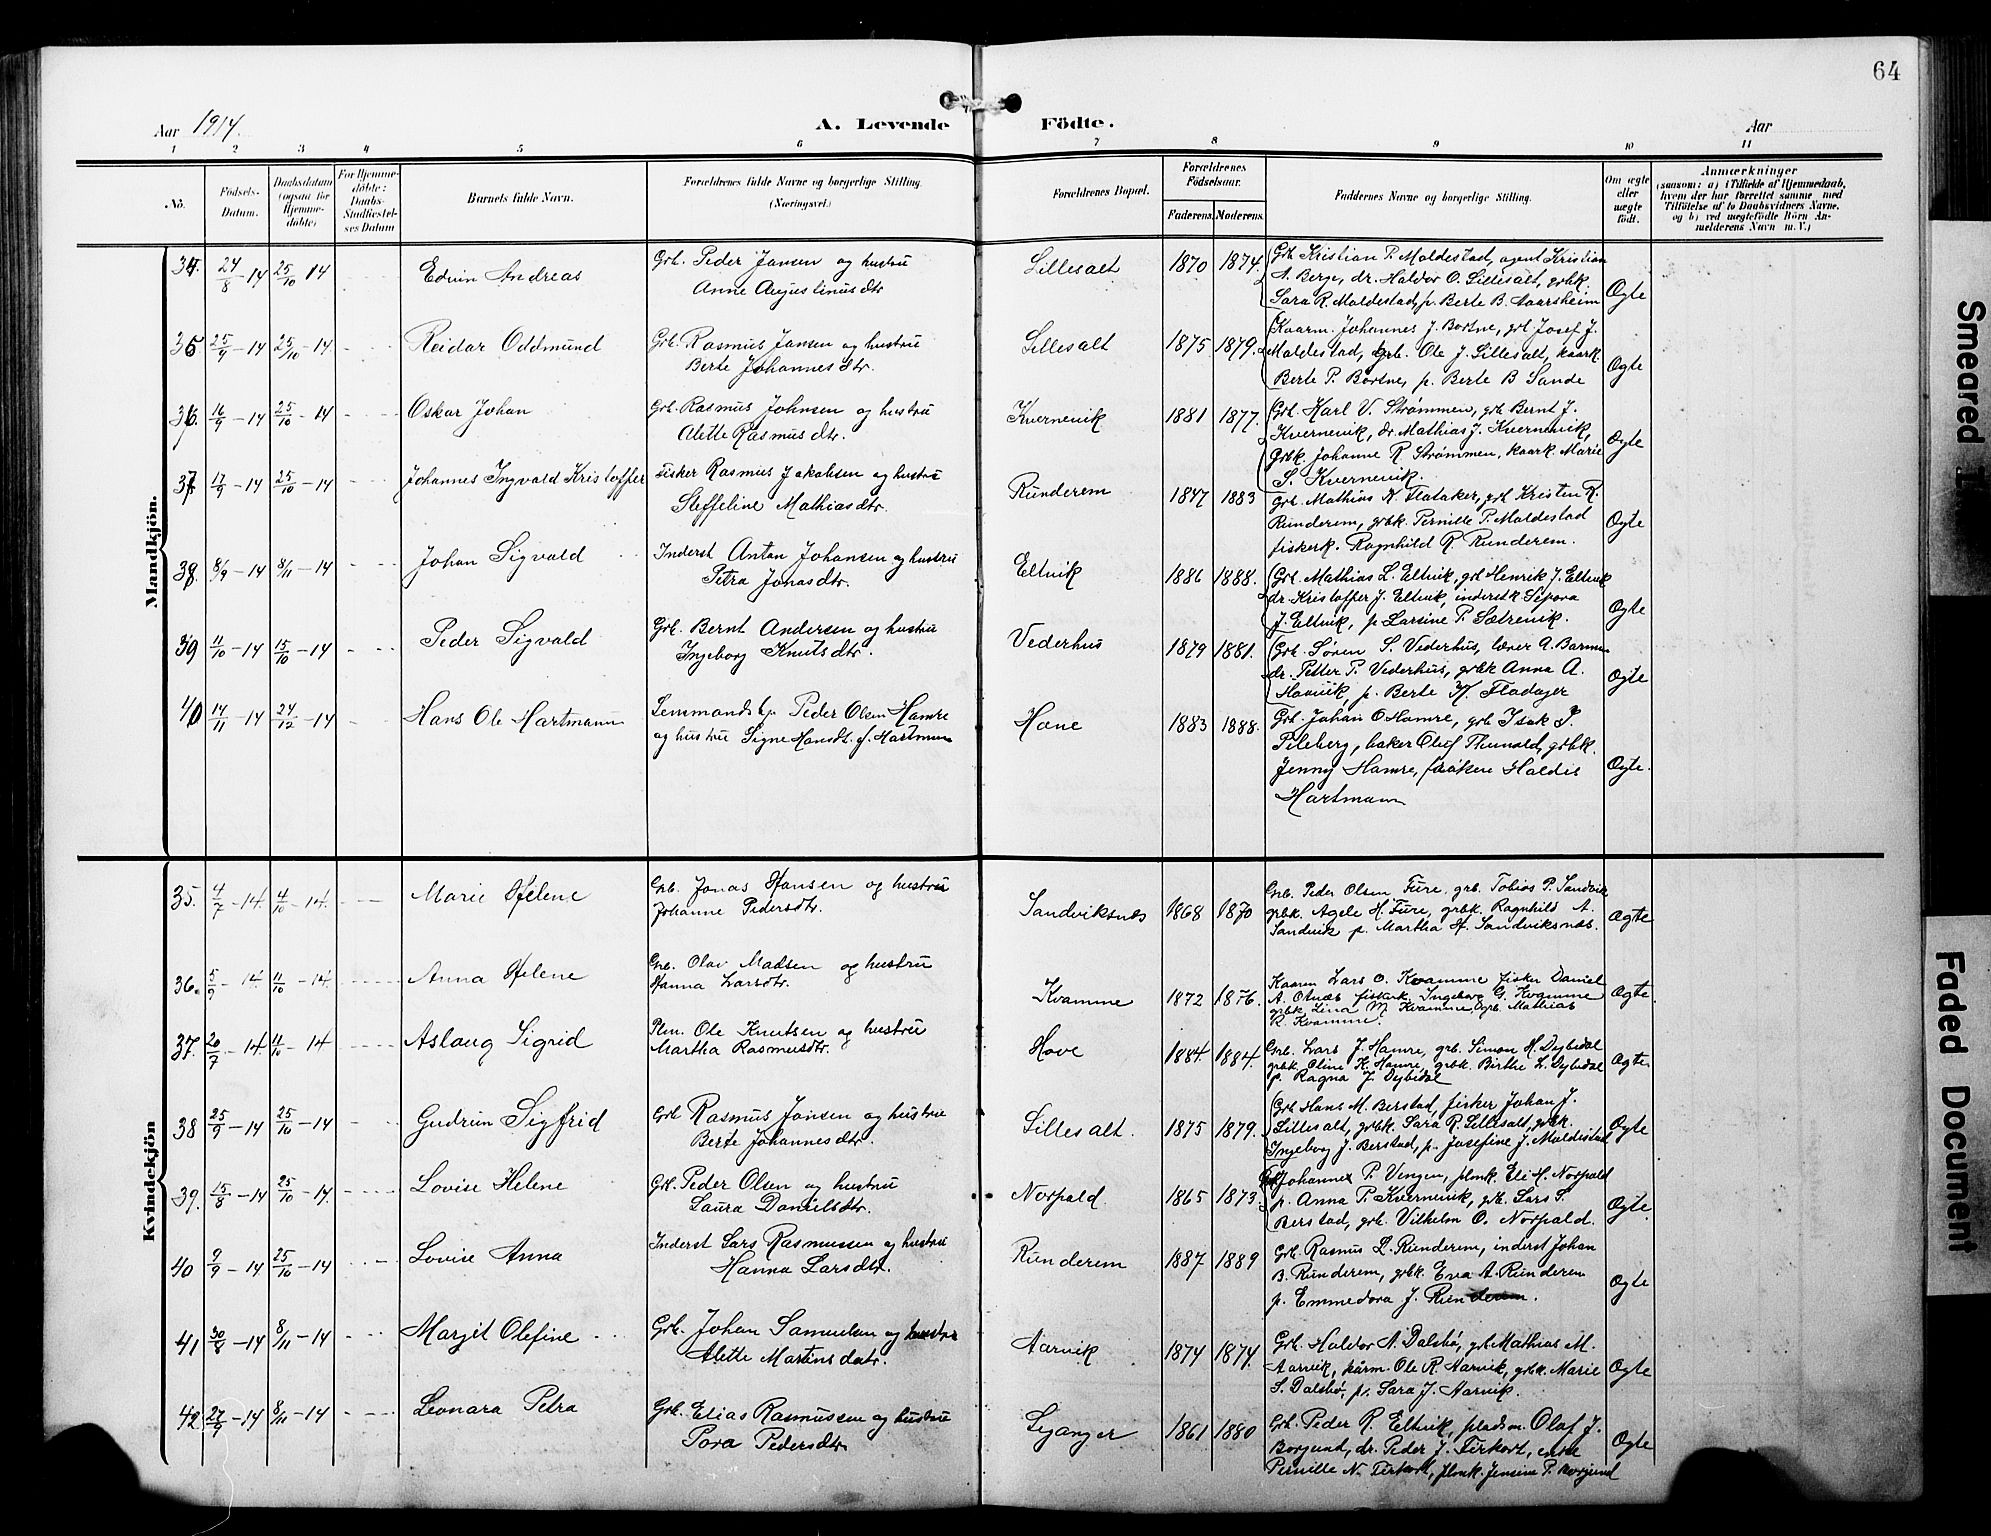 64
Aar 1914.
A. Levende Födte.
Aar
1 2 3 4 5 6 7 8 9 10 11
No.
Födsels-Datum.
Daabsdatum (ogsaa for Hjemmedöbte)
For Hjemmedöbte: Daabs-Stadfæstelses Datum
Barnets fulde Navn.
Forældrenes fulde Navne og borgerlige Stilling. (Næringsvei.)
Forældrenes Bopæl.
Forældrenes Födselsaar.
Faderens. Moderens.
Faddernes Navne og borgerlige Stilling.
Om ægte eller uægte födt.
Anmærkninger
(saasom: a) i Tilfælde af Hjemmedaab,
hvem der har forrettet samme, med
Tilföielse af to Daabsvidners Navne,
og b) ved uægtefödte Börn Anmelderens Navn m. V.)
Mandkjön.
34. 24/8 -14 25/10 14 Edvin Andreas Grb. Peder Jansen og hustru
Anne Augustinusdtr Lillesalt 1870 1874. Grb Kristian P. Maldestad, agent Kristian
A. Berge, dr. Haldor O. Lillesalt, grbk.
Sara R. Maldestad, p. Berte B. Aarsheim Ægte
35 25/9 -14 25/10 -14 Reidar Oddmund Grb. Rasmus Jansen og hustru
Berte Johannesdtr. Lillesalt 1875 1879. Kaarm. Johannes J. Bortne, grb Josef J.
Maldestad, grb. Ole J. Lillesalt, kaark.
Berte P. Bortne, p. Berte B Sande Ægte
36. 16/9 -14 25/10 -14 Oskar Johan Grb. Rasmus Johnsen og hustru
Alette Rasmusdtr. Kvernevik 1881 1877. Grb. Karl V. Strømmen, grb Bernt J.
Kvernevik, dr. Mathias J. Kvernevik,
Grbk. Johanne R. Strømmen, kaark. Marie
S. Kvernevik. Ægte
37. 17/9 -14 25/10 -14 Johannes Ingvald Kristoffer Fisker Rasmus Jakobsen og hustru
Steffeline Mathiasdtr. Runderem 1847 1883 Grb. Mathias N. Flataker, grb Kristen R.
Runderem, grbk. Pernille P. Maldestad
fiskerk. Ragnhild R. Runderem. Ægte
38. 8/9 -14 8/11 -14 Johan Sigvald Inderst Anton Johansen og hustru
Petra Jonasdtr. Eltvik 1886 1888. Grb. Mathias L. Eltvik, grb Henrik J. Eltvik
dr. Kristoffer J. Eltvik, inderstk Sepora
J. Eltvik, p Larsine P. Sætrevik. Ægte
39 11/10 -14 15/10 -14 Peder Sigvald Grb. Bernt Andersen og hustru
Ingeborg Knutsdtr. Vederhus 1879 1881. Grb. Søren S. Vederhus, lærer A. Barmen
dr. Petter P. Vederhus, grbk Anna A.
Hamvik, p. Berte M. Fladager Ægte
40 14/11 -14 24/12 -14 Hans Ole Hartmann Lensmandsbtj. Peder Olsen Hamre
og hustru Signe Hansdt. f. Hartmann Hove 1883 1888. Grb. Johan O Hamre, grb Isak J.
Pileberg, baker Oluf Thunold, grbk.
Jenny Hamre, frøken Haldis
Hartmann Ægte.
Kvindekjön
35. 4/7 -14. 4/10 -14. Marie Helene Grb. Jonas Hansen og hustru
Johanne Pedersdtr. Sandviksnæs 1868 1870 Grb. Peder Olsen Fure. grb. Tobias P. Sandvik
grbk. Agele H. Fure, grbk. Ragnhild A.
Sandvik p. Martha H. Sandviksnæs. Ægte
36. 5/9 -14. 11/10 -14. Anna Helene Grb. Olav Madsen og hustru
Hanna Larsdtr. Kvamme 1872 1876. Kaarm Lars O. Kvamme fisker Daniel
A. Otnæs fiskerk Ingeborg G. Kvamme
grbk Lina M. Kvamme, Grb. Mathias
R. Kvamme. Ægte
37. 20/7 -14. 11/10 -14 Aslaug Sigrid Plm. Ole Knutsen og hustru
Martha Rasmusdtr. Hove 1884. 1884. Grb. Lars J. Hamre, grb. Simon H. Dybedal
grbk. Oline K. Hamre, grbk. Birthe L. Dybedal
p. Ragna J. Dybedal Ægte
38 25/9 -14 25/10 -14 Gudrun Sigfrid Grb Rasmus Jansen og hustru
Berte Johannesdtr. Lillesalt. 1875 1879. Grb Hans M. Berstad, fisker Johan J.
Lillesalt, grbk. Sara R. Lillesalt, grbk.
Ingeborg J. Berstad, p. Josefine J. Maldestad Ægte
39. 15/8 -14 25/10 -14. Lovise Helene Grb. Peder Olsen og hustru
Laura Danielsdtr. Norpald. 1865 1873. Johannes P. Vengen, plmk. Eli H. Norpald
p. Anna P. Kvernevik, grb. Lars S.
Berstad, grb. Vilhelm O. Norpald. Ægte.
40 9/9 -14 25/10 -14 Lovise Anna Inderst Lars Rasmussen og hustru
Hanna Larsdtr. Runderem 1887 1889 Grb. Rasmus L. Runderem, inderst Johan
B. Runderem, grbk. Eva A. Runderem
p. Emmedora J. Runderem. Ægte
41 30/8 -14 8/11 -14 Margit Olefine Grb. Johan Samuelsen og hustru
Alette Martinsdatr. Aarvik 1874 1874. Grb. Haldor A. Dalsbø, grb Mathias M.
Aarvik, kårm. Ole R. Aarvik, grbk. Marie
S. Dalsbø, p. Sara J. Aarvik. Ægte
42. 27/9 -14 8/11 -14 Leonara Petra Grb. Elias Rasmussen og hustru
Pora Pedersdtr Leganger 1861 1880 Grb. Peder R. Eltvik, pladsm. Olaf J.
Borgund, dr. Peder J. Ferkort, enke
Pernille N. Ferkort, plmk. Jensine P. Borgund Ægte
Smeared
Faded Document